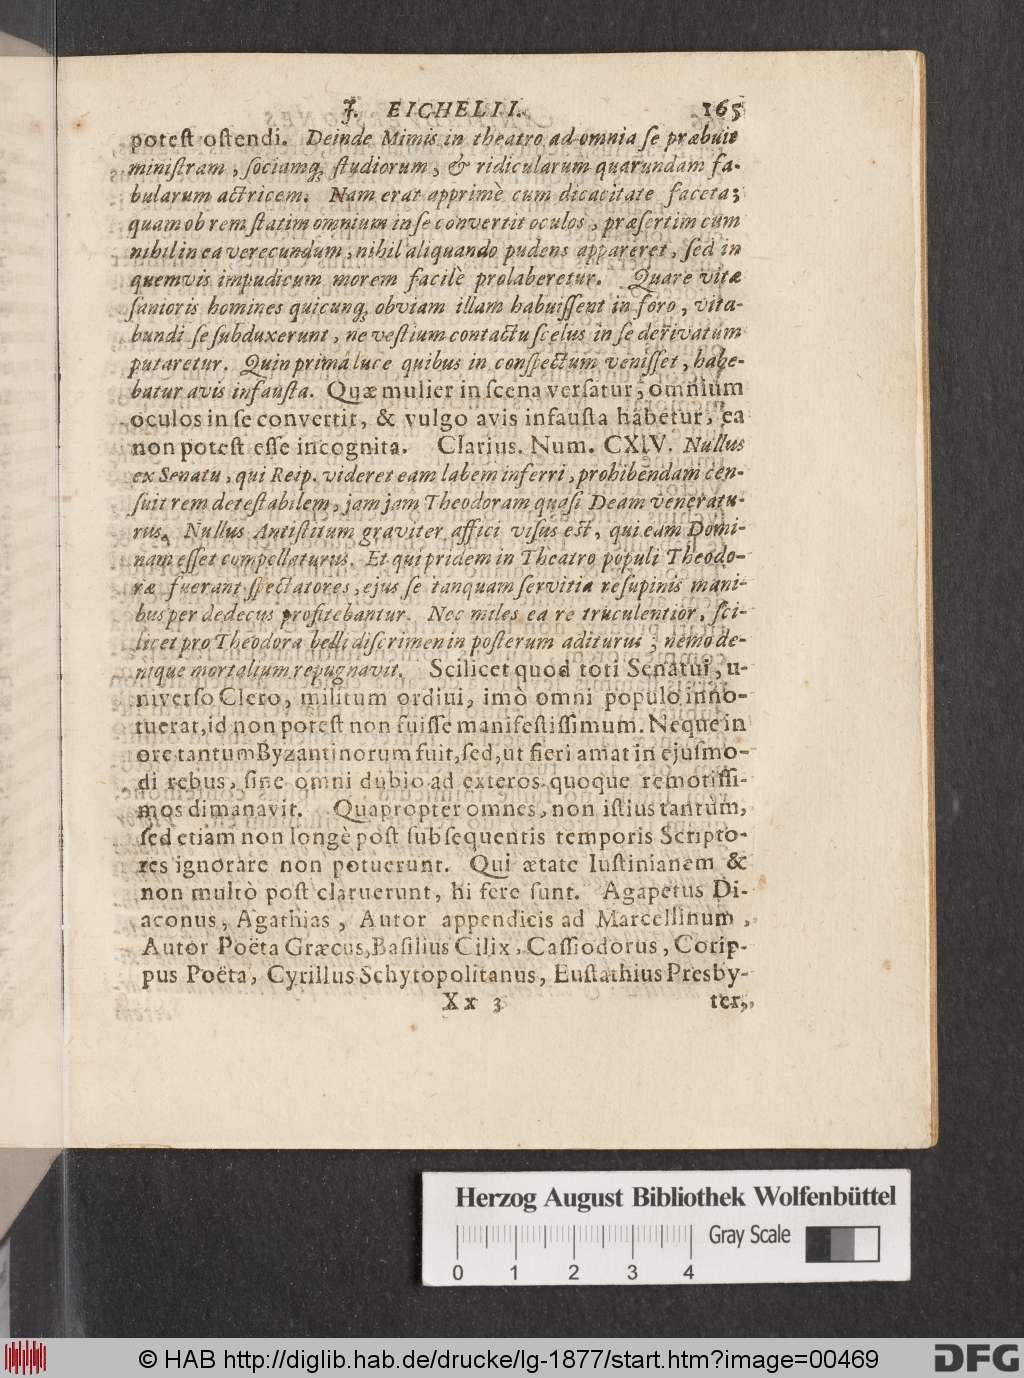 J. EICHELII. 165
potest ostendi. Deinde Mimis in theatro ad omnia se præbuit
ministram, sociamq; studiorum, & ridicularum quarundam fa-
bularum actricem. Nam erat apprimè cum dicacitate faceta;
quam ob rem statim omnium in se convertit oculos, præsertim cum
nihil in ea verecundum, nihil aliquando pudens appareret, sed in
quemvis impudicum morem facilè prolaberetur. Quare vitæ
sanioris homines quicunq; obviam illam habuissent in foro, vita-
bundi se subduxerunt, ne vestium contactu scelus in se derivatum
putaretur. Quin primâ luce quibus in conspectum venisset, habe-
batur avis infausta. Quæ mulier in scena versatur, omnium
oculos in se convertit, & vulgo avis infausta habetur, ea
non potest esse incognita. Clarius. Num. CXIV. Nullus
ex Senatu, qui Reip. videret eam labem inferri, prohibendam cen-
suit rem detestabilem, jam jam Theodoram quasi Deam veneratu-
rus. Nullus Antistitum graviter affici visus est, qui eam Domi-
nam esset compellaturus. Et qui pridem in Theatro populi Theodo-
ræ fuerant spectatores, ejus se tanquam servitia resupinis mani-
bus per dedecus profitebantur. Nec miles ea re truculentior, sci-
licet pro Theodora belli discrimen in posterum aditurus; nemo de-
nique mortalium repugnavit. Scilicet quod toti Senatui, u-
niverso Clero, militum ordini, imò omni populo inno-
tuerat, id non potest non fuisse manifestissimum. Neque in
ore tantum Byzantinorum fuit, sed, ut fieri amat in ejusmo-
di rebus, sine omni dubio ad exteros quoque remotissi-
mos dimanavit. Quapropter omnes, non istius tantum,
sed etiam non longè post subsequentis temporis Scripto-
res ignorare non potuerunt. Qui ætate Iustinianem &
non multò post claruerunt, hi fere sunt. Agapetus Di-
aconus, Agathias, Autor appendicis ad Marcellinum,
Autor Poëta Græcus, Basilius Cilix, Cassiodorus, Corip-
pus Poëta, Cyrillus Schytopolitanus, Eustathius Presby-
Xx 3 ter,
Herzog August Bibliothek Wolfenbüttel
Gray Scale
0 1 2 3 4
© HAB http://diglib.hab.de/drucke/lg-1877/start.htm?image=00469
DFG